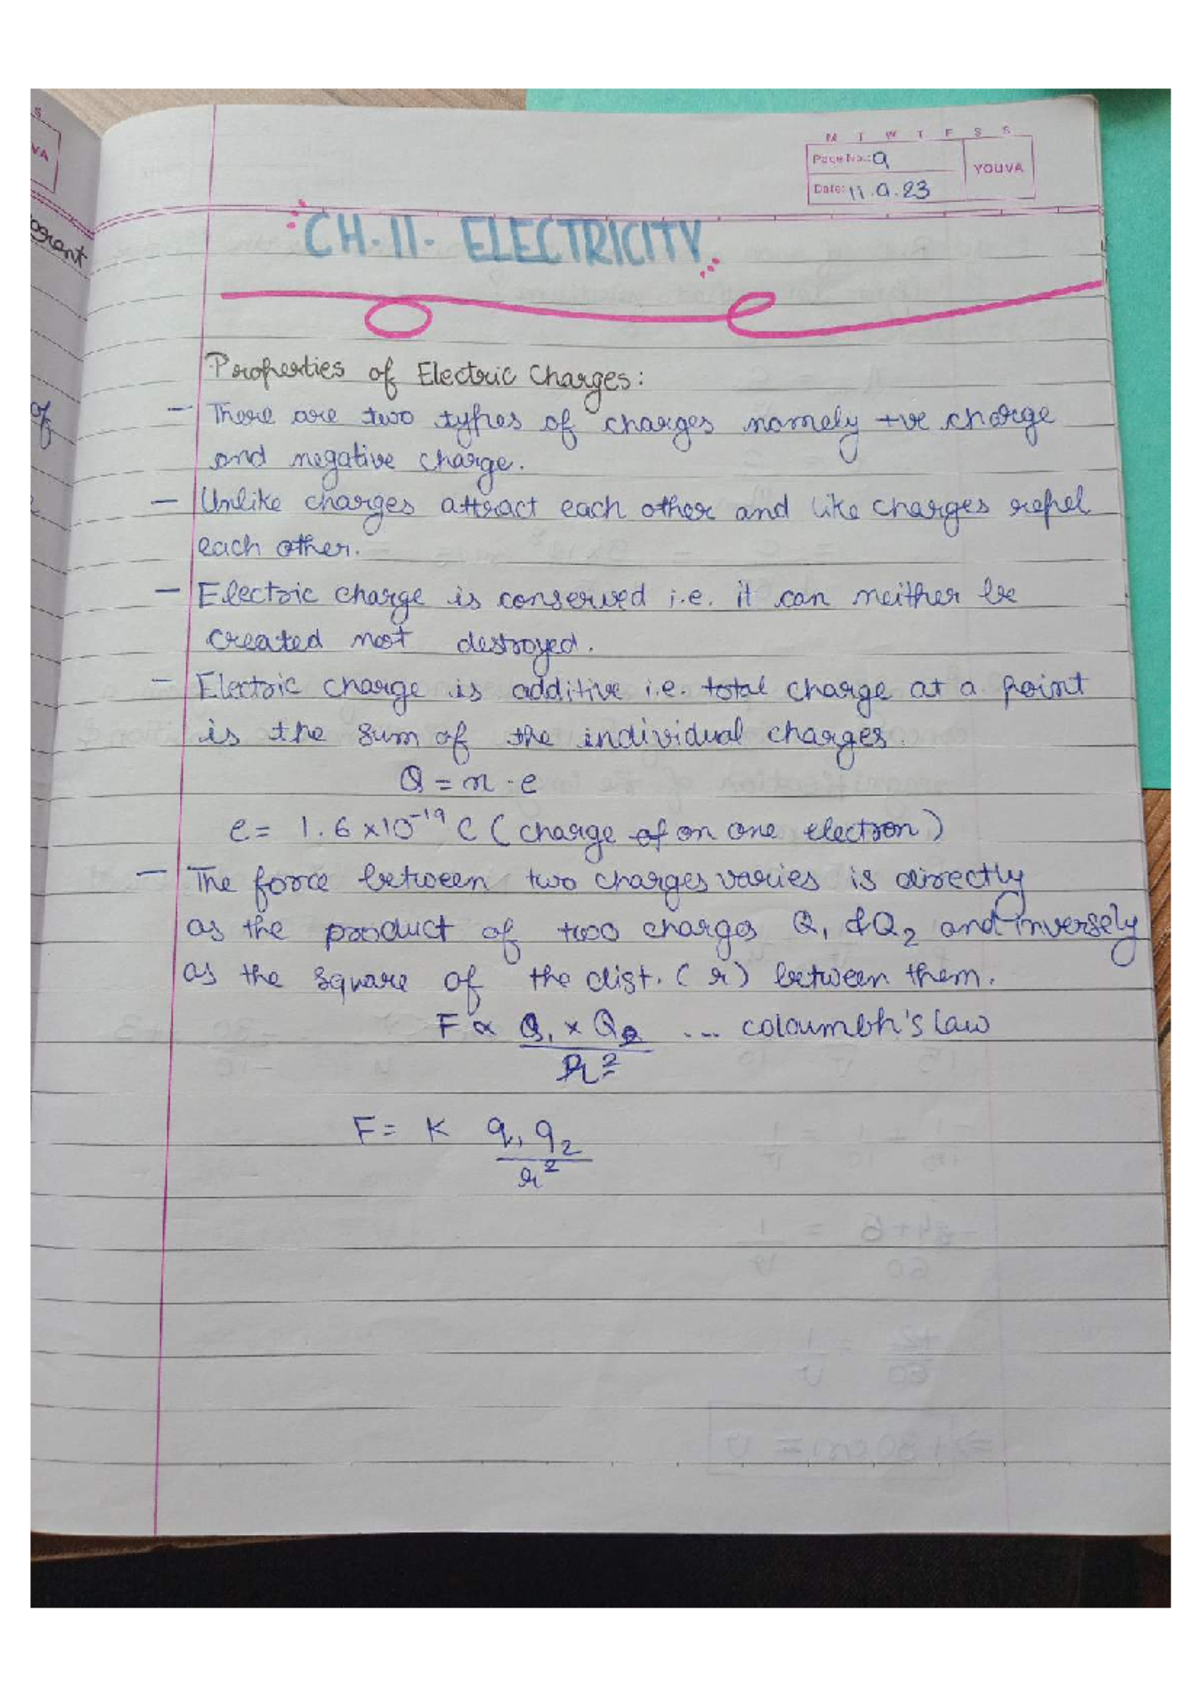 S
VA
M T W T F S S
Page No.: 9
YOUVA
Date: 11.9.23
CH-11- ELECTRICITY
of
Properties of Electric Charges:
- There are two types of charges namely +ve charge
and negative charge.
- Unlike charges attract each other and like charges repel
each other.
- Electric charge is conserved i.e. it can neither be
created not destroyed.
- Electric charge is additive i.e. total charge at a point
is the sum of the individual charges.
Q = n · e
e = 1.6 ×10⁻¹⁹ C (charge of on one electron)
- The force between two charges varies is directly
as the product of two charges Q₁ & Q₂ and inversely
as the square of the dist. (r) between them.
F ∝ Q₁ × Q₂ ... coloumbh's law
r²
F = K q₁ q₂
r²